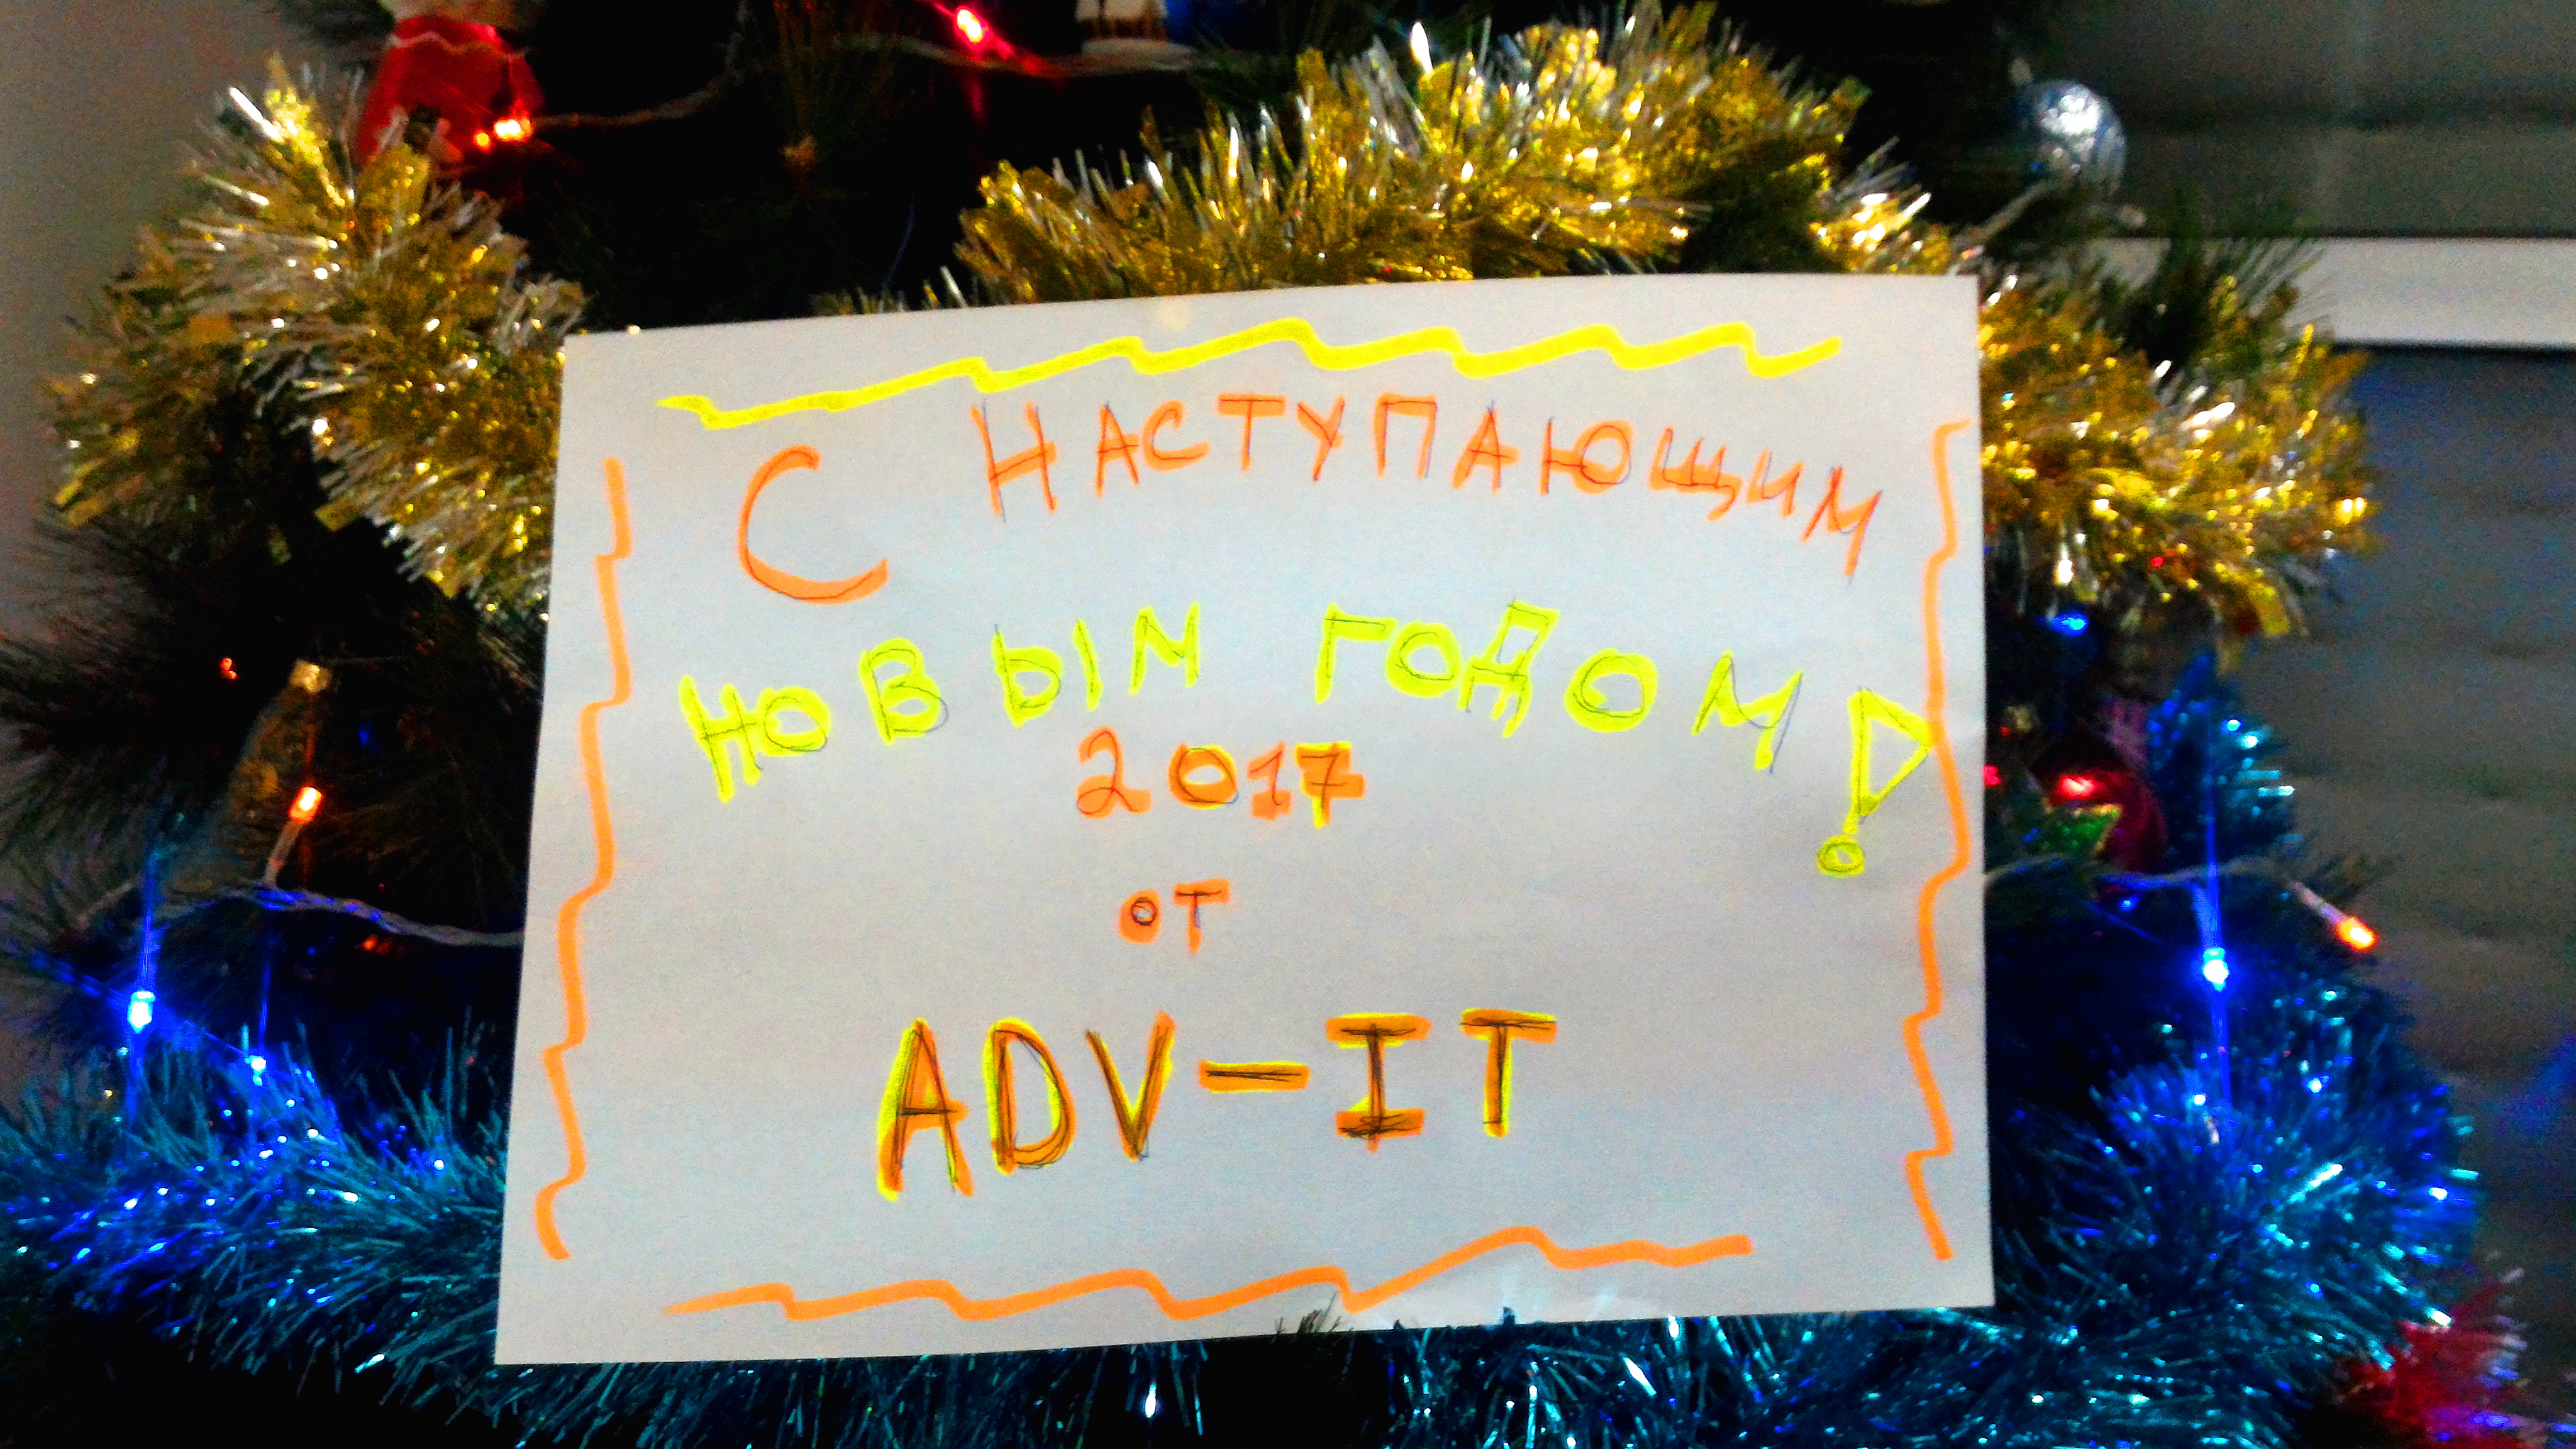 С НАСТУПАЮЩИМ
НОВЫМ ГОДОМ!
2017
от
ADV-IT